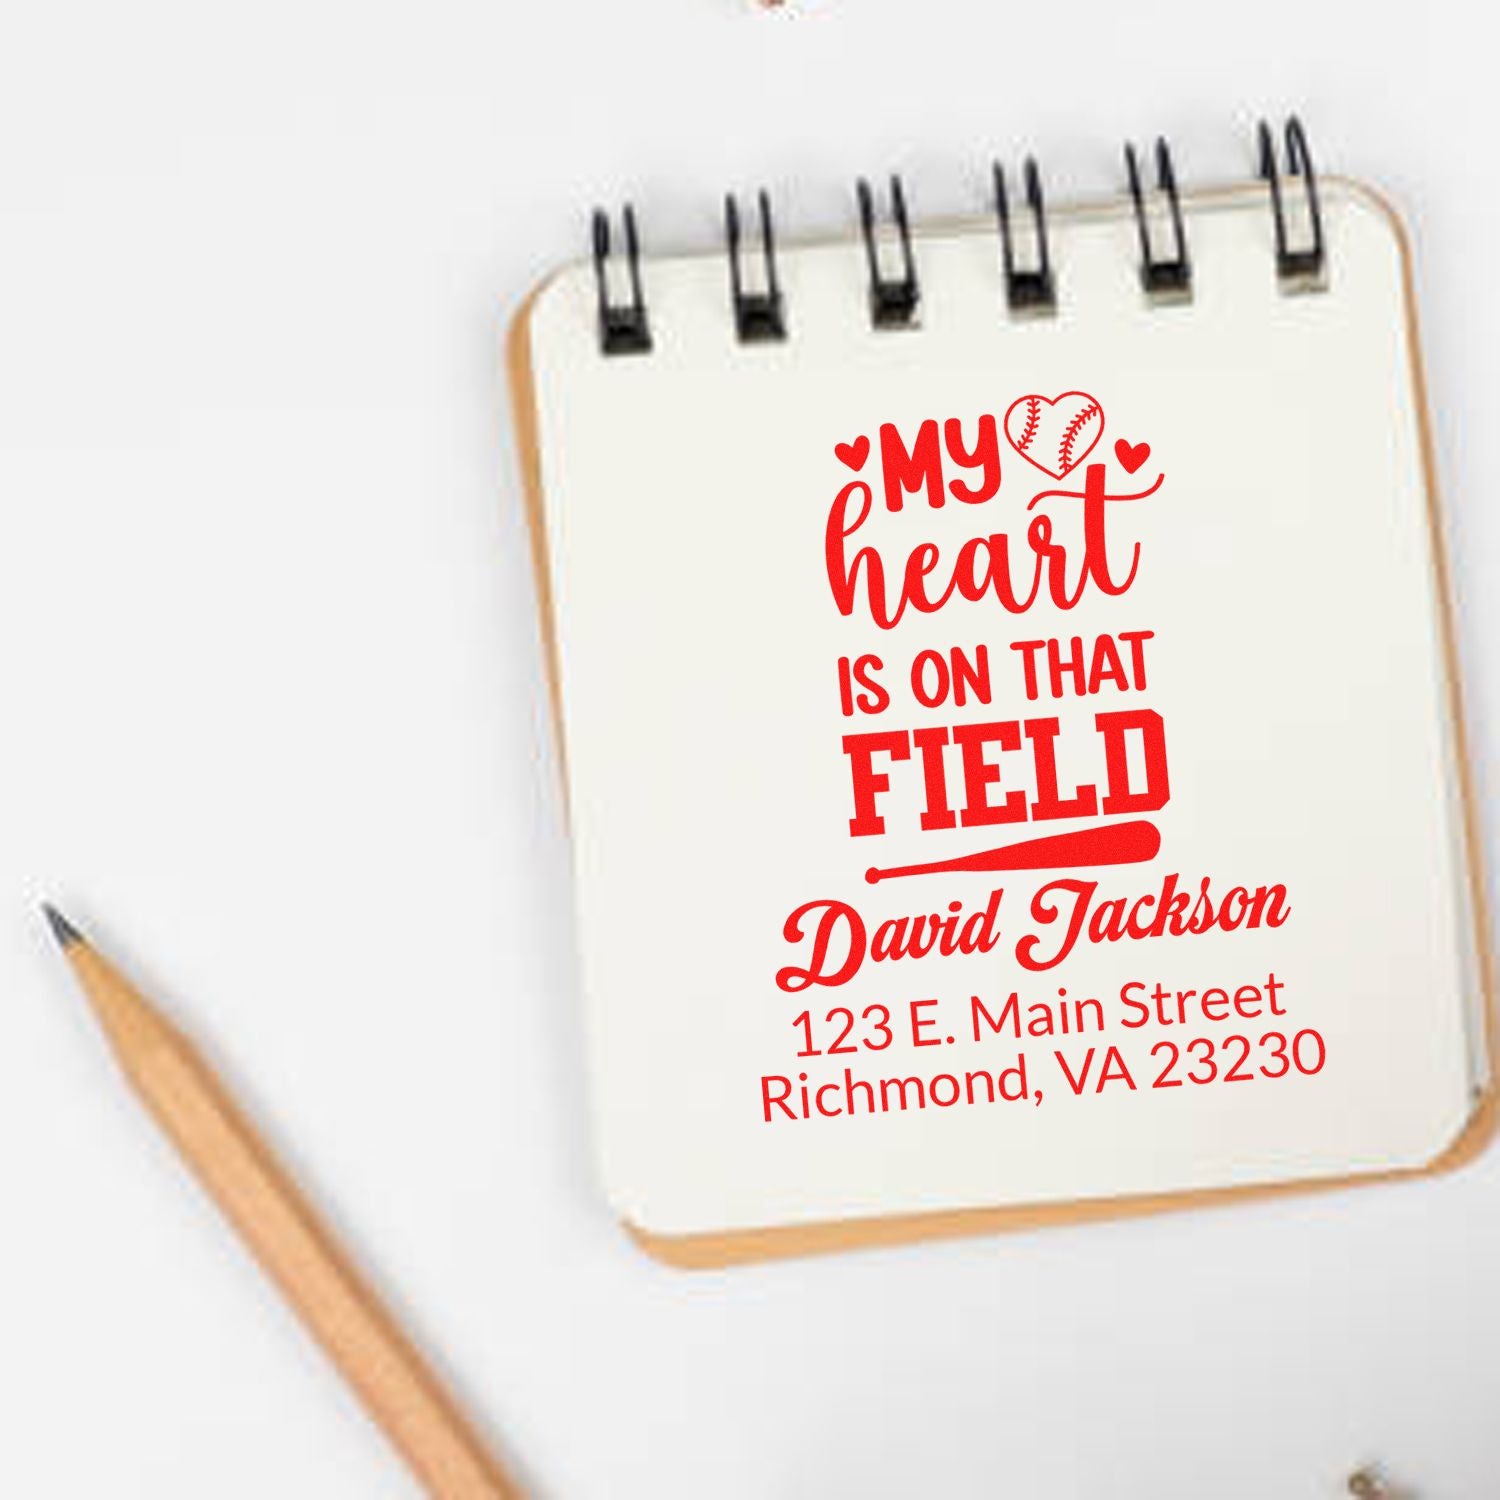 MY
heart
IS ON THAT
FIELD
David Jackson
123 E. Main Street
Richmond, VA 23230